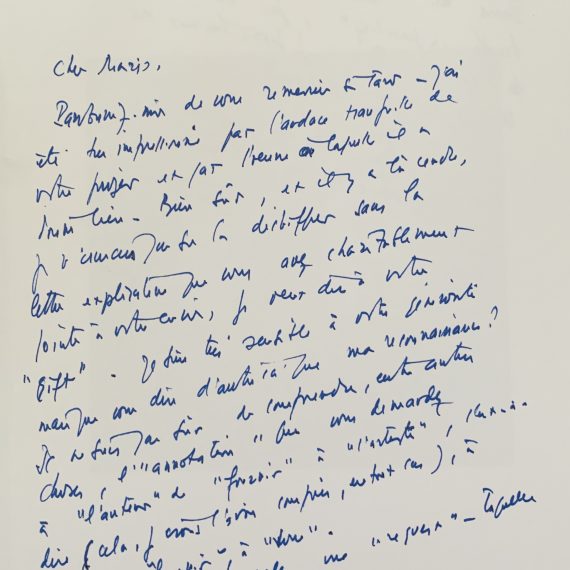 Cher Mario,
Pardonnez-moi de vous remercier si tard – j'ai
été très impressionné par l'audace tranquille de
votre projet et par l'œuvre à laquelle il a
donné lieu – Bien sûr, et il y a là cendre,
je n'aurais pas su la déchiffrer sans la
lettre explicative que vous avez charitablement
jointe à votre envoi, je veux dire à votre
"Gift". Je suis très sensible à votre générosité
mais que vous dire d'autre ici que ma reconnaissance?
Je ne suis pas sûr de comprendre, entre autres
choses, l'"annotation" que vous demandez
à "l'auteur" de "fournir" à "l'artiste",
dire (cela, je crois l'avoir compris, en tout cas), à
à "
"request" – laquelle